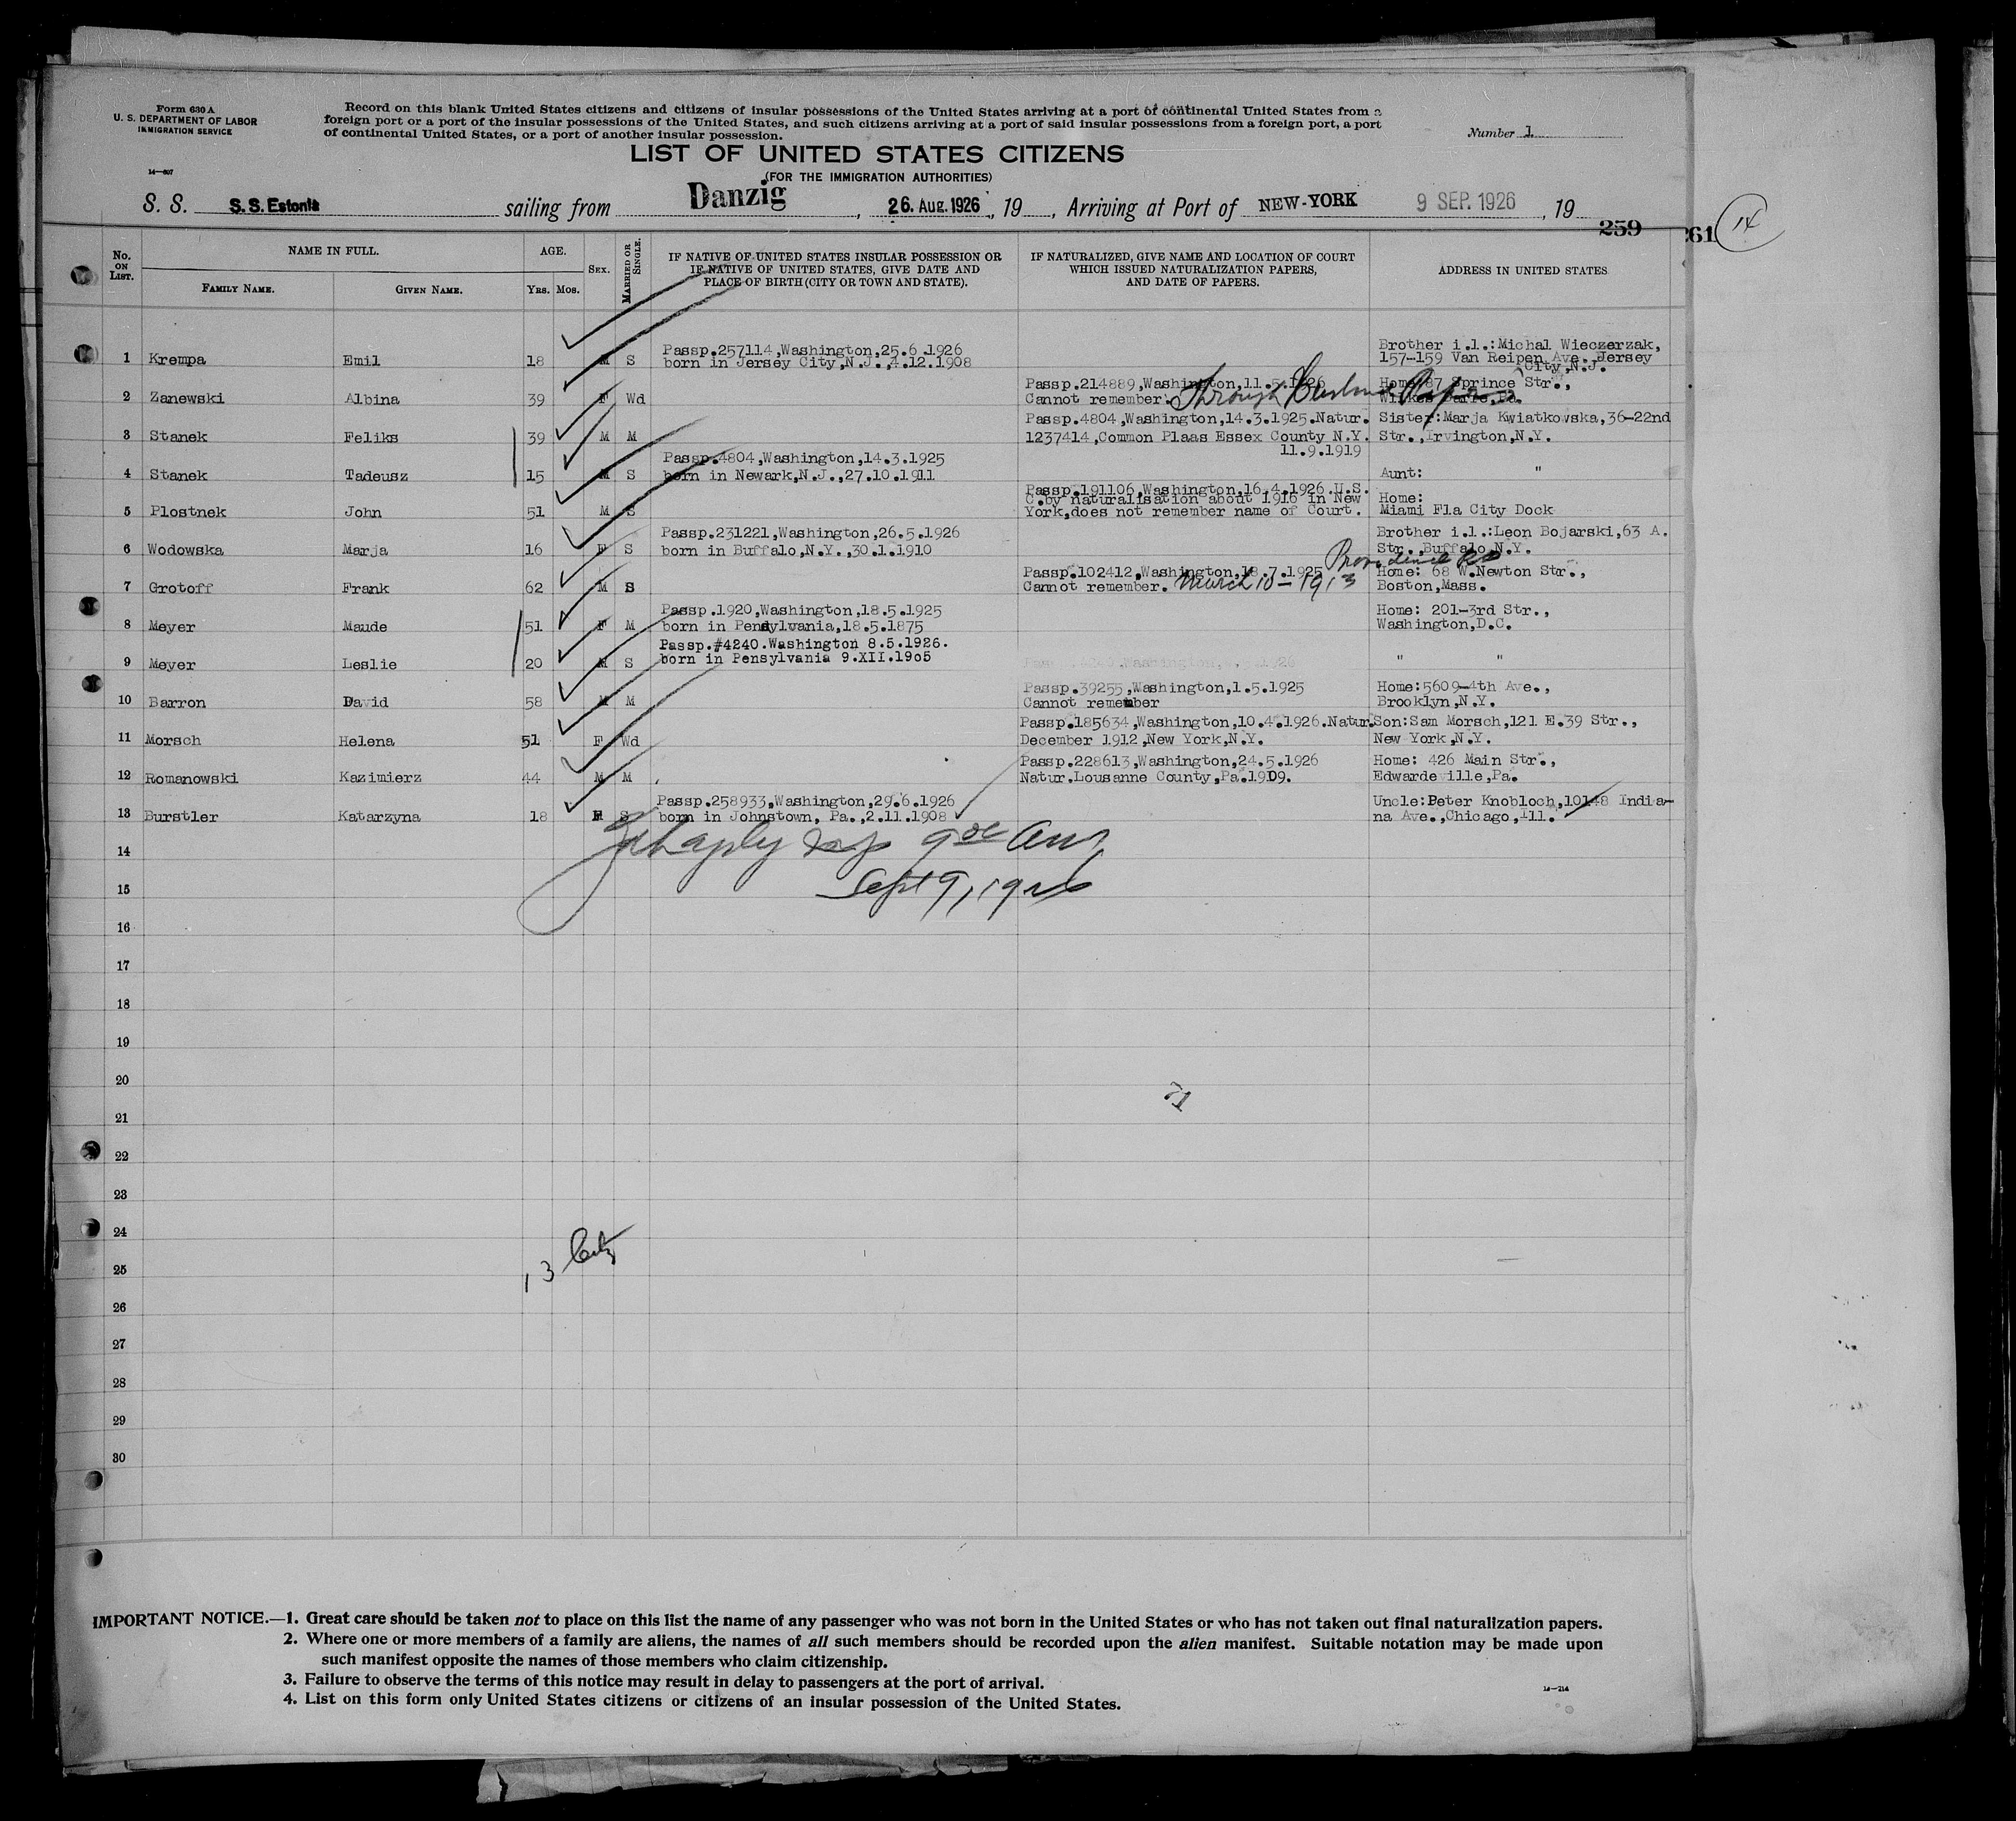 Form 630 A
U. S. DEPARTMENT OF LABOR
IMMIGRATION SERVICE
14—607
Record on this blank United States citizens and citizens of insular possessions of the United States arriving at a port of continental United States from a
foreign port or a port of the insular possessions of the United States, and such citizens arriving at a port of said insular possessions from a foreign port, a port
of continental United States, or a port of another insular possession.
Number 1.
LIST OF UNITED STATES CITIZENS
(FOR THE IMMIGRATION AUTHORITIES)
S. S. S.S. Estonia sailing from Danzig, 26. Aug. 1926, 19 , Arriving at Port of NEW-YORK 9 SEP. 1926, 19
259
261
14
No. ON LIST.
NAME IN FULL.
FAMILY NAME. GIVEN NAME.
AGE.
YRS. MOS.
SEX.
MARRIED OR SINGLE.
IF NATIVE OF UNITED STATES INSULAR POSSESSION OR
IF NATIVE OF UNITED STATES, GIVE DATE AND
PLACE OF BIRTH (CITY OR TOWN AND STATE).
IF NATURALIZED, GIVE NAME AND LOCATION OF COURT
WHICH ISSUED NATURALIZATION PAPERS,
AND DATE OF PAPERS.
ADDRESS IN UNITED STATES
Passp.257114,Washington,25.6.1926 Brother i.l.:Michal Wieczerzak,
1 Krempa Emil 18 M S born in Jersey City,N.J.,4.12.1908 157-159 Van Reipen Ave. Jersey
City,N.J.
Passp.214889,Washington,11.5.1926 Home:87 Sprince Str.,
2 Zanewski Albina 39 F Wd Cannot remember. Through Papers Wilkes Barre,Pa.
Passp.4804,Washington,14.3.1925.Natur. Sister:Marja Kwiatkowska,36-22nd
3 Stanek Feliks 39 M M 1237414,Common Plaas Essex County N.Y. Str.,Irvington,N.Y.
11.9.1919
Passp.4804,Washington,14.3.1925
4 Stanek Tadeusz 15 M S born in Newark,N.J.,27.10.1911 Aunt: "
Passp.191106,Washington,16.4.1926.U.S.
C.by naturalisation about 1916 in New Home:
5 Plostnek John 51 M S York,does not remember name of Court. Miami Fla City Dock
Passp.231221,Washington,26.5.1926 Brother i.l.:Leon Bojarski,63 A.
6 Wodowska Marja 16 F S born in Buffalo,N.Y.,30.1.1910 Str.,Buffalo N.Y.
Providence
Passp.102412,Washington,18.7.1925 Home: 68 W.Newton Str.,
7 Grotoff Frank 62 M S Cannot remember. March 10 - 1913 Boston,Mass.
Passp.1920,Washington,18.5.1925 Home: 201-3rd Str.,
8 Meyer Maude 51 F M born in Pensylvania,18.5.1875 Washington,D.C.
Passp.#4240.Washington 8.5.1926.
9 Meyer Leslie 20 M S born in Pensylvania 9.XII.1905 " "
Passp.39255,Washington,1.5.1925 Home:5609-4th Ave.,
10 Barron David 58 M M Cannot remember Brooklyn,N.Y.
Passp.185634,Washington,10.4.1926.Natur. Son:Sam Morsch,121 E.39 Str.,
11 Morsch Helena 51 F Wd December 1912,New York,N.Y. New York,N.Y.
Passp.228613,Washington,24.5.1926 Home: 426 Main Str.,
12 Romanowski Kazimierz 44 M M Natur.Lousanne County,Pa.1909. Edwardeville,Pa.
Passp.258933,Washington,29.6.1926 Uncle:Peter Knobloch,10148 India-
13 Burstler Katarzyna 18 F S born in Johnstown, Pa.,2.11.1908 na Ave.,Chicago,Ill.
14
15 Sept 9, 1926
16
17
18
19
20
71
21
22
23
24
13
25
26
27
28
29
30
IMPORTANT NOTICE.—1. Great care should be taken not to place on this list the name of any passenger who was not born in the United States or who has not taken out final naturalization papers.
2. Where one or more members of a family are aliens, the names of all such members should be recorded upon the alien manifest. Suitable notation may be made upon
such manifest opposite the names of those members who claim citizenship.
3. Failure to observe the terms of this notice may result in delay to passengers at the port of arrival.
4. List on this form only United States citizens or citizens of an insular possession of the United States.
14—214